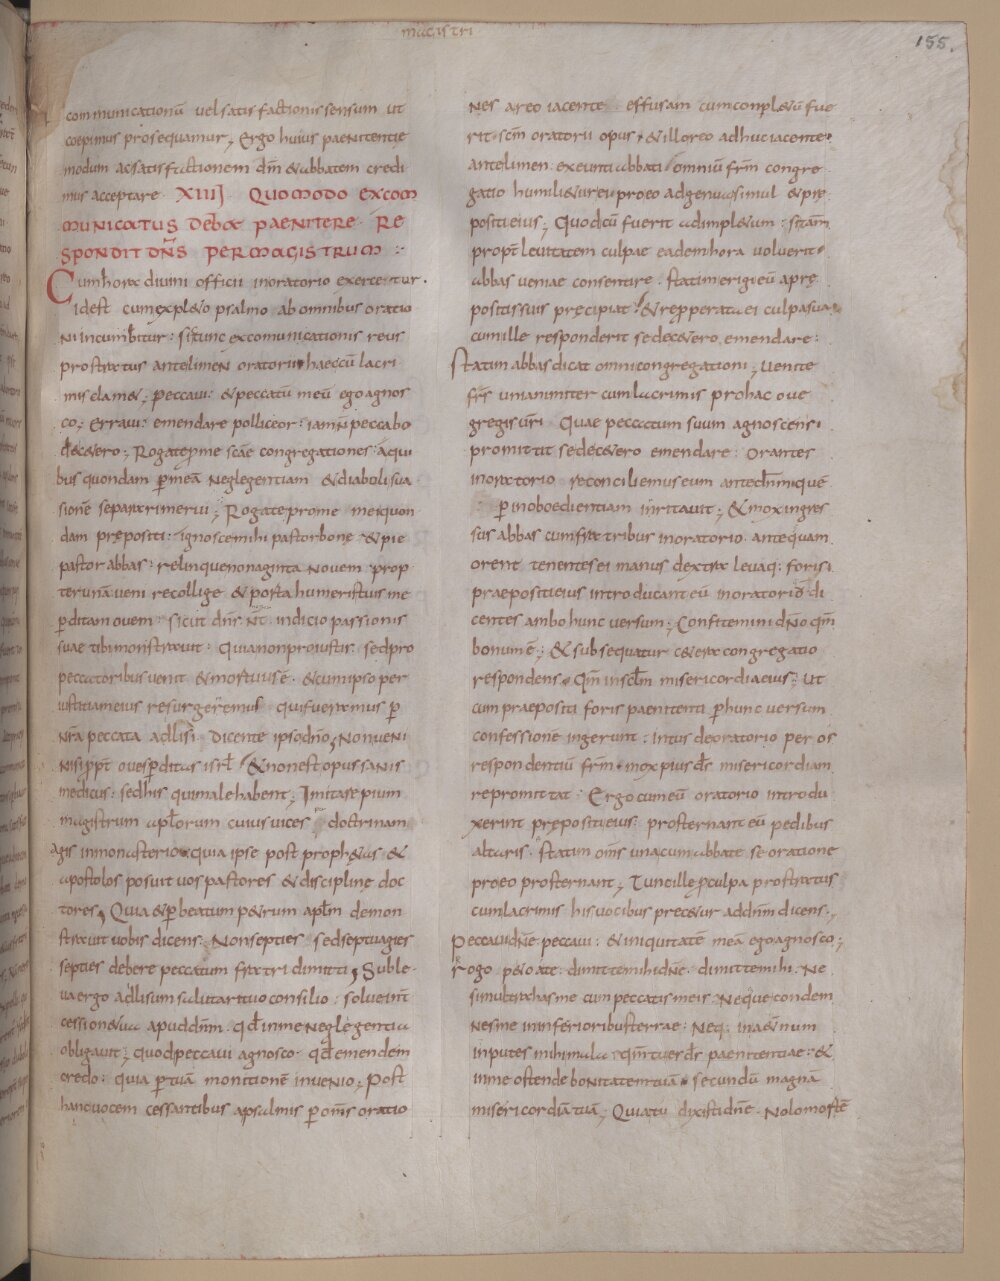 magistri
155.
communicationū vel satisfactionis sensum ut
coepimus prosequamur; Ergo huius paenitentie
modum ac satisfactionem dm̄ & abbatem credi
mus acceptare XIIIJ QUOMODO EXCOM
MUNICATUS DEBEAT PAENITERE RE
SPONDIT DN̄S PER MAGISTRUM :
Cum hora divini officii in oratorio exercetur.
id est cum expl&o psalmo ab omnibus oratio
ni incumbitur: si tunc excomunicationis reus
prostratus ante limen oratorii haec cū lacri
mis clam&; peccavi: & peccatū meū ego agnos
co; Erravi: emendare polliceor: iam n̄ peccabo
de c&ero; Rogate p me scāe congregationes: a qui
bus quondam p meā neglegentiam & diaboli sua
sionē separari merui; Rogate pro me mei quon
dam prępositi: ignosce mihi pastor bonę & pie
pastor abbas: relinque nonaginta novem prop
ter unā veni recollige & posita humeris tuis me
pditam ovem: sicut dn̄s nr̄ indicio passionis
suae tibi monstravit: Quia non pro iustis sed pro
peccatoribus venit & mortuus ē: & cum ipso per
iustitiam eius resurgeremus qui fueramus p
nr̄a peccata adlisi dicente ipso dn̄o, Non veni
nisi ppt̄ oves pditas isrl̄ & non est opus sanis
medicus: sed his qui male habent; Imitare pium
magistrum apl̄orum cuius vices doctrinam
agis in monasterio quia ipse post proph&as &
apostolos posuit vos pastores & discipline doc
tores, Quia & p beatum p&rum apl̄m demon
stravit vobis dicens: Non septies sed septuagies
septies debere peccatum fratri dimitti, Suble
va ergo adlisum salutari tuo consilio: solve int̄
cessione tua apud dn̄m. qd̄ in me neglegentia
obligavit; quod peccavi agnosco: qd̄ emendem
credo: quia p tuā monitionē invenio; Post
hanc vocem cessantibus a psalmis p om̄s oratio
nes a reo iacente effusam cum conpl&ū fue
rit scm̄ oratorii opus & illo reo adhuc iacente
ante limen exeunti abbati omniū fr̄m congre
gatio humili&ur eu pro eo ad genua simul & pre
positi eius; Quod cū fuerit adimpl&um: si tam̄
propt̄ levitatem culpae eadem hora voluerit
abbas veniae consentire: statim erigi eū a prę
positis suis pręcipiat & repperata ei culpa sua
cum ille responderit se de c&ero emendare:
Statim abbas dicat omni congregationi; Venite
fr̄s unanimiter cum lacrimis pro hac ove
gregis ur̄i Quae peccatum suum agnoscens
promittit se de c&ero emendare: Orantes
in oratorio reconciliemus eum ante dn̄m quē
p inoboedientiam inritavit; & mox ingres
sus abbas cum fratribus in oratorio antequam
orent tenentes ei manus dextra levaq; foris
praepositi eius introducant eū in oratoriō di
centes ambo hunc versum; Confitemini dn̄o qm̄
bonum ē; & subsequatur c&era congregatio
respondens qm̄ in sclm̄ misericordia eius; Ut
cum praepositi foris paenitenti p hunc versum
confessione ingerunt: intus de oratorio per os
respondentiū fr̄m mox pius ds̄ misericordiam
repromittat: Ergo cum eū oratorio introdu
xerint prępositi eius prosternant eū pedibus
altaris. statim om̄s una cum abbate se oratione
pro eo prosternant; Tunc ille p culpa prostratus
cum lacrimis his vocibus prec&ur ad dn̄m dicens;
Peccavi dn̄e peccavi: & iniquitatē meā ego agnosco;
Rogo p&o a te: dimitte mihi dn̄e dimitte mihi. Ne
simul trahas me cum peccatis meis. Neque condem
nes me in inferioribus terrae: Neq; in a&ernum
inputes mihi mala qm̄ tu er ds̄ paenitentiae: &
in me ostende bonitatem tuā secundū magnā
misericordiā tuā; Quia tu dixisti dn̄e. Nolo mortē